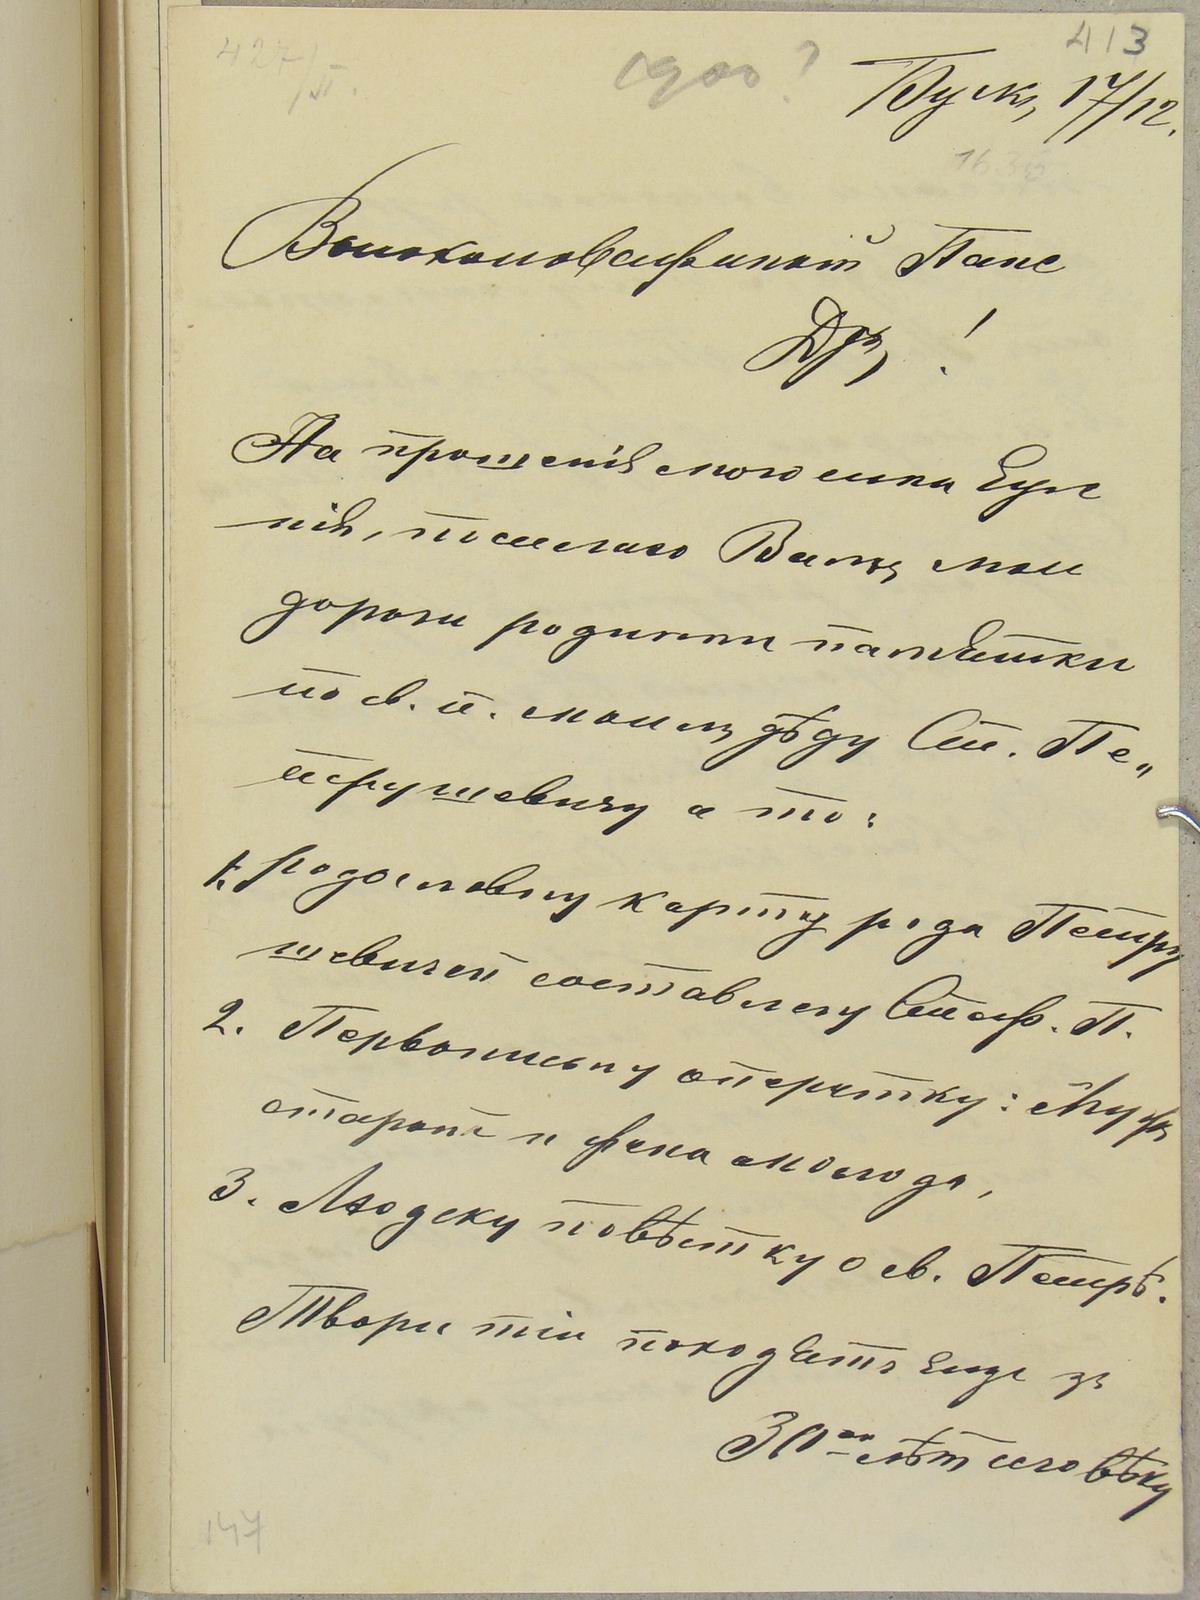 413
427/II.
1900?
Буск, 17/12.
Високоповажаный Пане
Дръ !
На прошеніє мого сина Евге
нія, посылаю Вамъ мои
дороги родинни памятки
по св. п. моимъ дѣду Ст. Пе„
трушевичу а то:
1. родословну карту рода Петру
шевичей составлену Стеф. П.
2. Первописьну оперетку: Мужъ
старый и жена молода,
3. Людску повѣстку о св. Петрѣ.
Твори тіи походятъ еще зъ
30ых лѣт сего вѣку
147